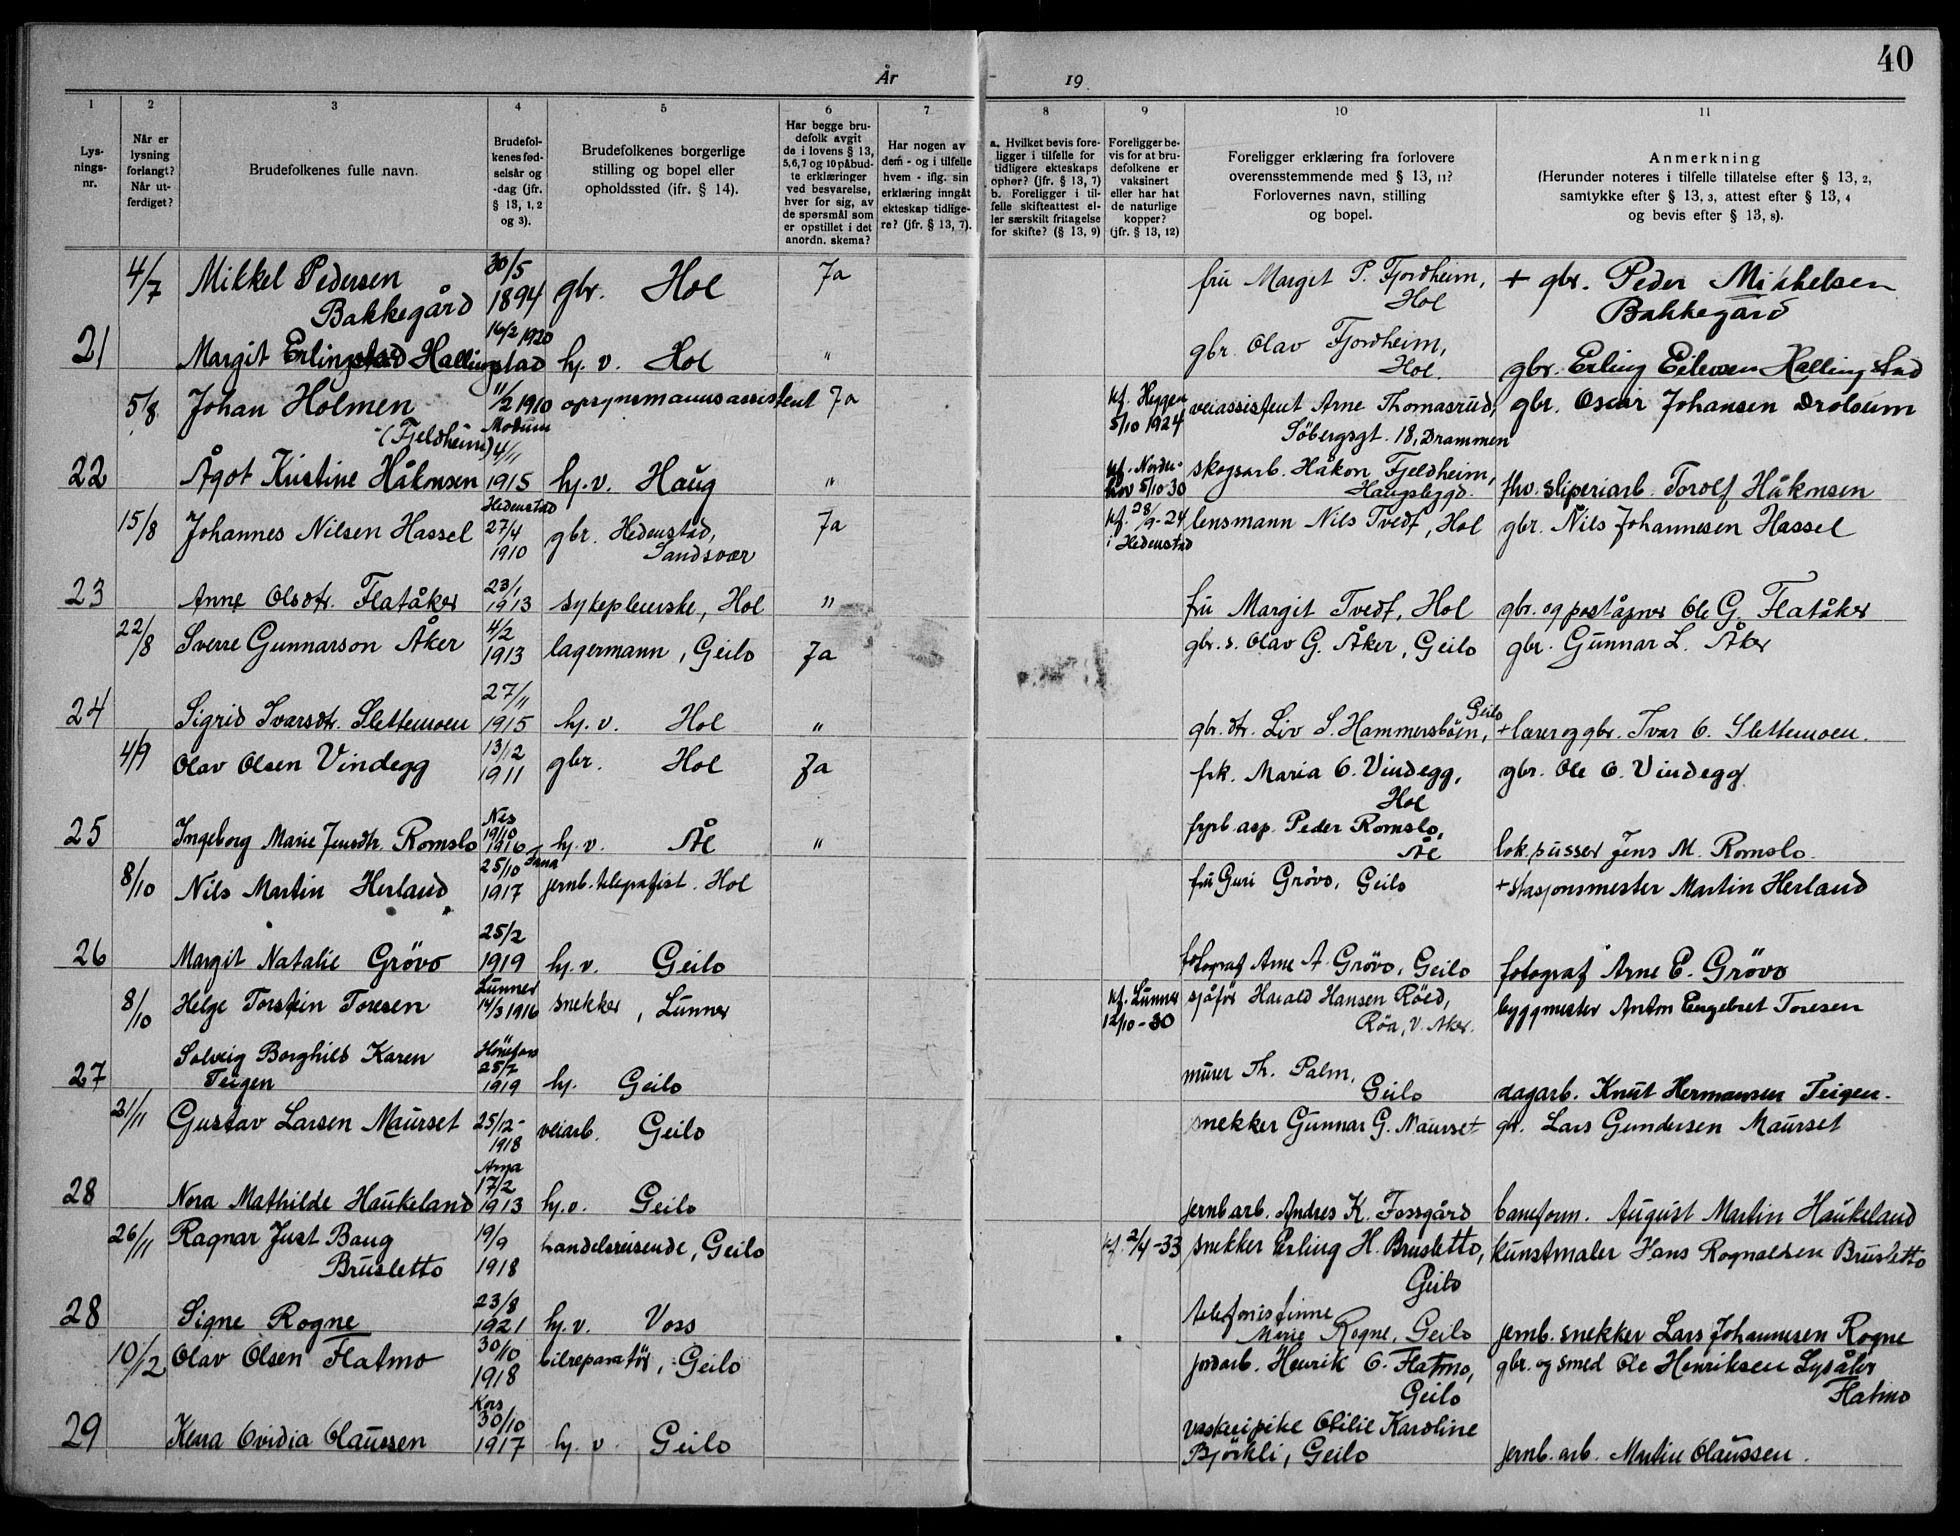 40
År 19
1 2 3 4 5 6 7 8 9 10 11
Lysningsnr.
Når er lysning forlangt? Når utferdiget?
Brudefolkenes fulle navn.
Brudefolkenes fødselsår og -dag (jfr. § 13, 1, 2 og 3).
Brudefolkenes borgerlige stilling og bopel eller opholdssted (ifr. § 14).
Har begge brudefolk avgit de i lovens § 13, 5, 6, 7 og 10 påbudte erklæringer ved besvarelse, hver for sig, av de spørsmål som er opstillet i det anordn. skema?
Har nogen av dem - og i tilfelle hvem - iflg. sin erklæring inngått ekteskap tidligere? (jfr. § 13, 7).
a. Hvilket bevis foreligger i tilfelle for tidligere ekteskaps ophør? (jfr. § 13, 7) b. Foreligger i tilfelle skifteattest eller særskilt fritagelse for skifte? (§ 13, 9)
Foreligger bevis for at brudefolkene er vaksinert eller har hat de naturlige kopper? (jfr. § 13, 12)
Foreligger erklæring fra forlovere overensstemmende med § 13, 11? Forlovernes navn, stilling og bopel.
Anmerkning (Herunder noteres i tilfelle tillatelse efter § 13, 2, samtykke efter § 13, 3, attest efter § 13, 4 og bevis efter § 13, 8).
4/7 Mikkel Pedersen Bakkegård 30/5 1894 gbr. Hol Ja fru Margit P. Fjordheim, Hol + gbr. Peder Mikkelsen Bakkegård
21 Margit Hallingstad 16/2 1920 hj. v. Hol " gbr. Olav Fjordheim, Hol. gbr. Erling Eilevsen Hallingstad
5/8 Johan Holmen 11/2 1910 Modum opsynsmannsassistent Ja kf. Heggen 5/10 1924 veiassistent Arne Thomasrud, Söbergsgt. 18, Drammen gbr. Oscar Johansen Drolsum
22 (Fjeldheim) Ågot Kristine Håkonsen 4/11 1915 hj. v. Haug " kf. Norderhov 5/10-30 skogsarb. Håkon Fjeldheim, Haugsbygd. fhv. sliperiarb. Torolf Håkonsen
15/8 Johannes Nilsen Hassel Hedenstad 27/4 1910 gbr. Hedenstad, Sandsvær Ja kf. 28/9-24 i Hedenstad lensmann Nils Tvedt, Hol gbr. Nils Johannesen Hassel
23 Anne Olsdtr. Flatåker 23/1 1913 sykepleierske, Hol " fru Margit Tvedt, Hol gbr. og poståpner Ole G. Flatåker
22/8 Sverre Gunnarson Åker 4/2 1913 lagermann, Geilo Ja gbr. s. Olav G. Åker, Geilo gbr. Gunnar L. Åker
24 Sigrid Ivarsdtr. Slettemoen 27/11 1915 hj. v. Hol " gbr. dtr. Liv S. Hammersböen, Geilo + lærer og gbr. Ivar O. Slettemoen.
4/9 Olav Olsen Vindegg 13/12 1911 gbr. Hol Ja frk. Maria O. Vindegg, Hol gbr. Ole O. Vindegg
25 Ingeborg Marie Jensdtr. Romslo Nes 19/10 1916 hj. v. Ål " fyrb. asp. Peder Romslo, Ål lok. pusser Jens M. Romslo.
8/10 Nils Martin Herland 25/10 Fana 1917 jernb. telegrafist. Hol fru Guri Grövo, Geilo + stasjonsmester Martin Herland
26 Margit Natalie Grövo 25/2 1919 hj. v. Geilo fotograf Arne A. Grövo, Geilo fotograf Arne E. Grövo
8/10 Helge Torstein Toresen Lunner 14/3 1916 snekker, Lunner kf. Lunner 12/10-30 sjåfør Harald Hansen Röed, Röa, V. Aker. byggmester Anton Engebret Toresen
27 Solveig Borghild Karen Teigen Hönefoss 25/7 1919 hj. Geilo murer Th. Palm, Geilo dagarb. Knut Hermansen Teigen.
21/11 Gustav Larsen Maurset 25/12- 1918 veiarb. Geilo snekker Gunnar G. Maurset gbr. Lars Gundersen Maurset
28 Nora Mathilde Haukeland Arna 17/2 1913 hj. v. Geilo jernb arb. Andres K. Fossgård baneform. August Martin Haukeland
26/11 Ragnar Just Baug Brusletto 19/9 1918 handelsreisende, Geilo kf. 2/4-33 snekker Erling H. Brusletto, Geilo kunstmaler Hans Rognaldsen Brusletto
28 Signe Rogne 23/8 1921 hj. v. Voss telefonistinne Marie Rogne, Geilo jernb. snekker Lars Johannesen Rogne
10/12 Olav Olsen Flatmo 30/10 1918 bilreparatör, Geilo jordarb. Henrik O. Flatmo, Geilo gbr. og smed Ole Henriksen Lyśåker Flatmo
29 Klara Ovidia Olaussen Kors 30/10 1917 hj. v. Geilo vaskeripike Otilie Karoline Björkli, Geilo jernb. arb. Martin Olaussen.